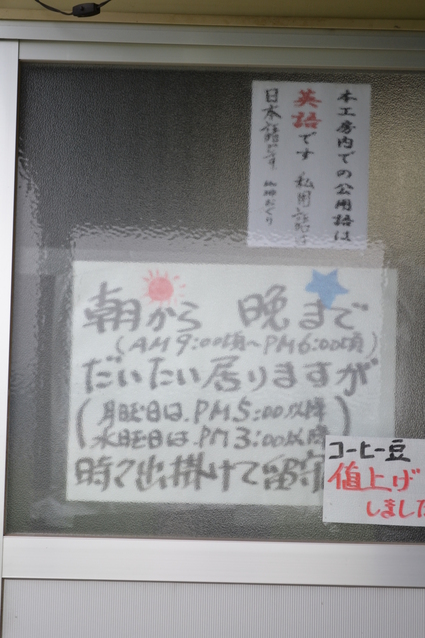 本工房内での公用語は
英語です 私用語は
日本語です
朝から 晩まで
(AM9:00頃〜PM6:00頃)
だいたい居りますが
(月曜日は、PM5:00以降)
(水曜日は、PM3:00以降)
時々出掛けて留守
コーヒー豆
値上げ
しました